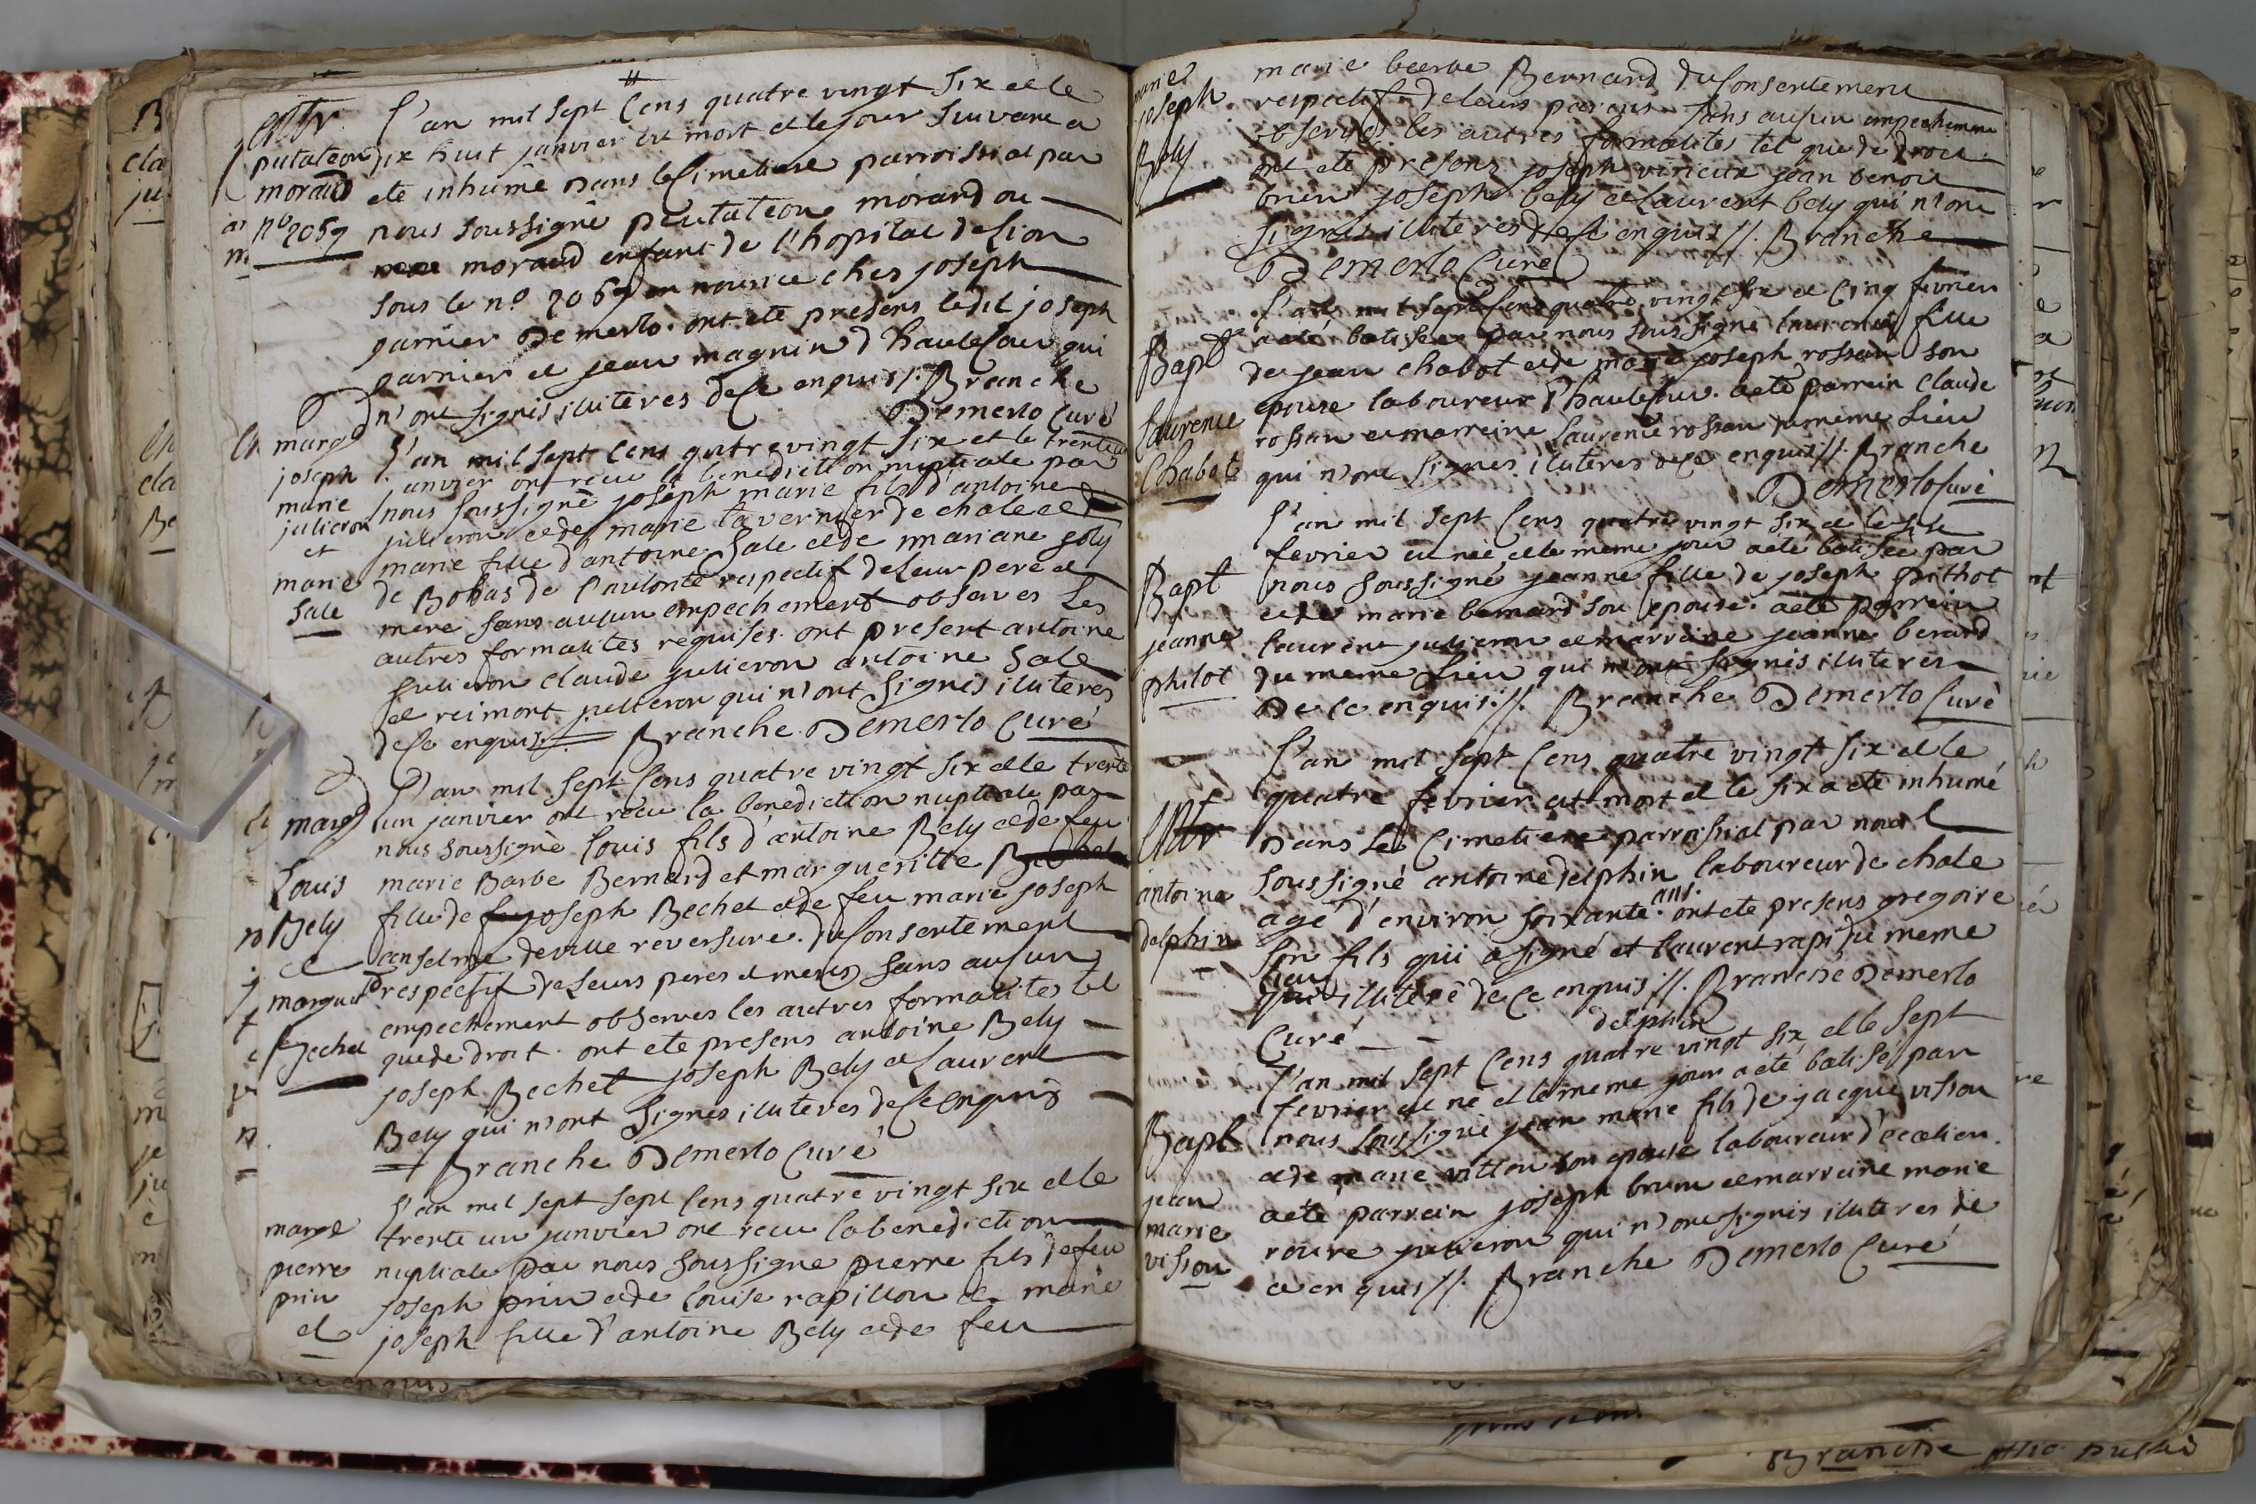 L'an mil sept Cens quatre vingt six et le
dix huit janvier est mort et le jour suivant a
eté inhumé dans le Cimetiere parroissial par
nous soussigné putateon morand ou
morand enfant de l'hopital de lion
sous le n° 2069 en nourrice ches joseph
garnier Demerlo. ont ete presens ledit joseph
garnier et jean magnin d'hauteCour qui
n'ont signés illiteres de Ce enquis //. Branche
Demerlo Curé
putateon
morand
n° 2069
L'an mil sept Cens quatre vingt six et le trente
janvier ont recu la benediction nuptiale par
nous soussigné joseph marie fils d'antoine
julieron et de marie tavernier de chale et
marie fille d'antoine Sale et de mariane joly
de Bobas de l'autorité respectif de Leur pere et
mere sans auCun empechement observes les
autres formalites requises. ont present antoine
julieron claude julieron antoine Sale
et reimont julieron qui n'ont signés illiteres
de Ce enquis. // Branche Demerlo Curé
marge
joseph
marie
julieron
et
marie
Sale
L'an mil sept Cens quatre vingt six et le trente
un janvier ont recu la benediction nuptiale par
nous soussigné Louis fils d'antoine Bely et de feu
marie Barbe Bernard et margueritte Bechet
fille de feu joseph Bechet et de feu marie joseph
anselme deville reversure. du Consentement
respectif de Leurs peres et meres sans auCun
empechement observes les autres formalites tel
que de droit. ont ete presens antoine Bely
joseph Bechet joseph Bely et Laurent
Bely qui n'ont signés illiteres de Ce enquis
Branche Demerlo Curé
marge
Louis
Bely
et
marguerite
Bechet
L'an mil sept sept Cens quatre vingt six et le
trente un janvier ont recu la benediction
nuptiale par nous soussigné pierre fils de feu
joseph prin et de Louise rapillon et marie
joseph fille d'antoine Bely et de feu
marge
pierre
prin
et
marie
joseph
Bely
marie barbe Bernard du Consentement
respectif de leurs parens sans auCun empechement
observés les autres formalites tel que de droit.
ont ete presens joseph virieux jean benoit
brun joseph bely et Laurent bely qui n'ont
signés illiteres de Ce enquis //. Branche
Demerlo Curé
L'an mil sept Cens quatre vingt six et Cinq fevrier
a eté batisée par nous soussigné laurence fille
de jean chabot et de marie joseph rossan son
epouse laboureur d'hauteCour. a eté parrein Claude
rossan et marreine Laurence rossan du meme Lieu
qui n'ont signés illiteres de Ce enquis //. Branche
Demerlo Curé
Bapt
Laurence
Chabot
L'an mil sept Cens quatre vingt six et le six
fevrier est née et le meme jour a eté batisée par
nous soussigné jeanne fille de joseph pithot
et de marie bernard son epouse. a eté parrein
laurent julieron et marreine jeanne berard
du meme Lieu qui n'ont signés illiteres
De Ce enquis. //. Branche Demerlo Curé
Bapt
jeanne
philot
L'an mil sept Cens quatre vingt six et le
quatre fevrier est mort et le six a eté inhumé
Dans Le Cimetiere parroissial par nous
soussigné antoine delphin laboureur de chale
agé d'environ soixante ans. ont ete presens gregoire
son fils qui a signé et Laurent rapi du meme
lieu
qui illiteré de Ce enquis //. Branche Demerlo
Curé delphin
antoine
delphin
L'an mil sept Cens quatre vingt six et le sept
fevrier est né et le meme jour a eté batisé par
nous soussigné jean marie fils de jacque visson
et de marie vitton son epouse laboureur d'ecotier.
a eté parrein joseph brun et marreine marie
roure julieron qui n'ont signés illiteres de
ce enquis //. Branche Demerlo Curé
Bapt
jean
marie
visson